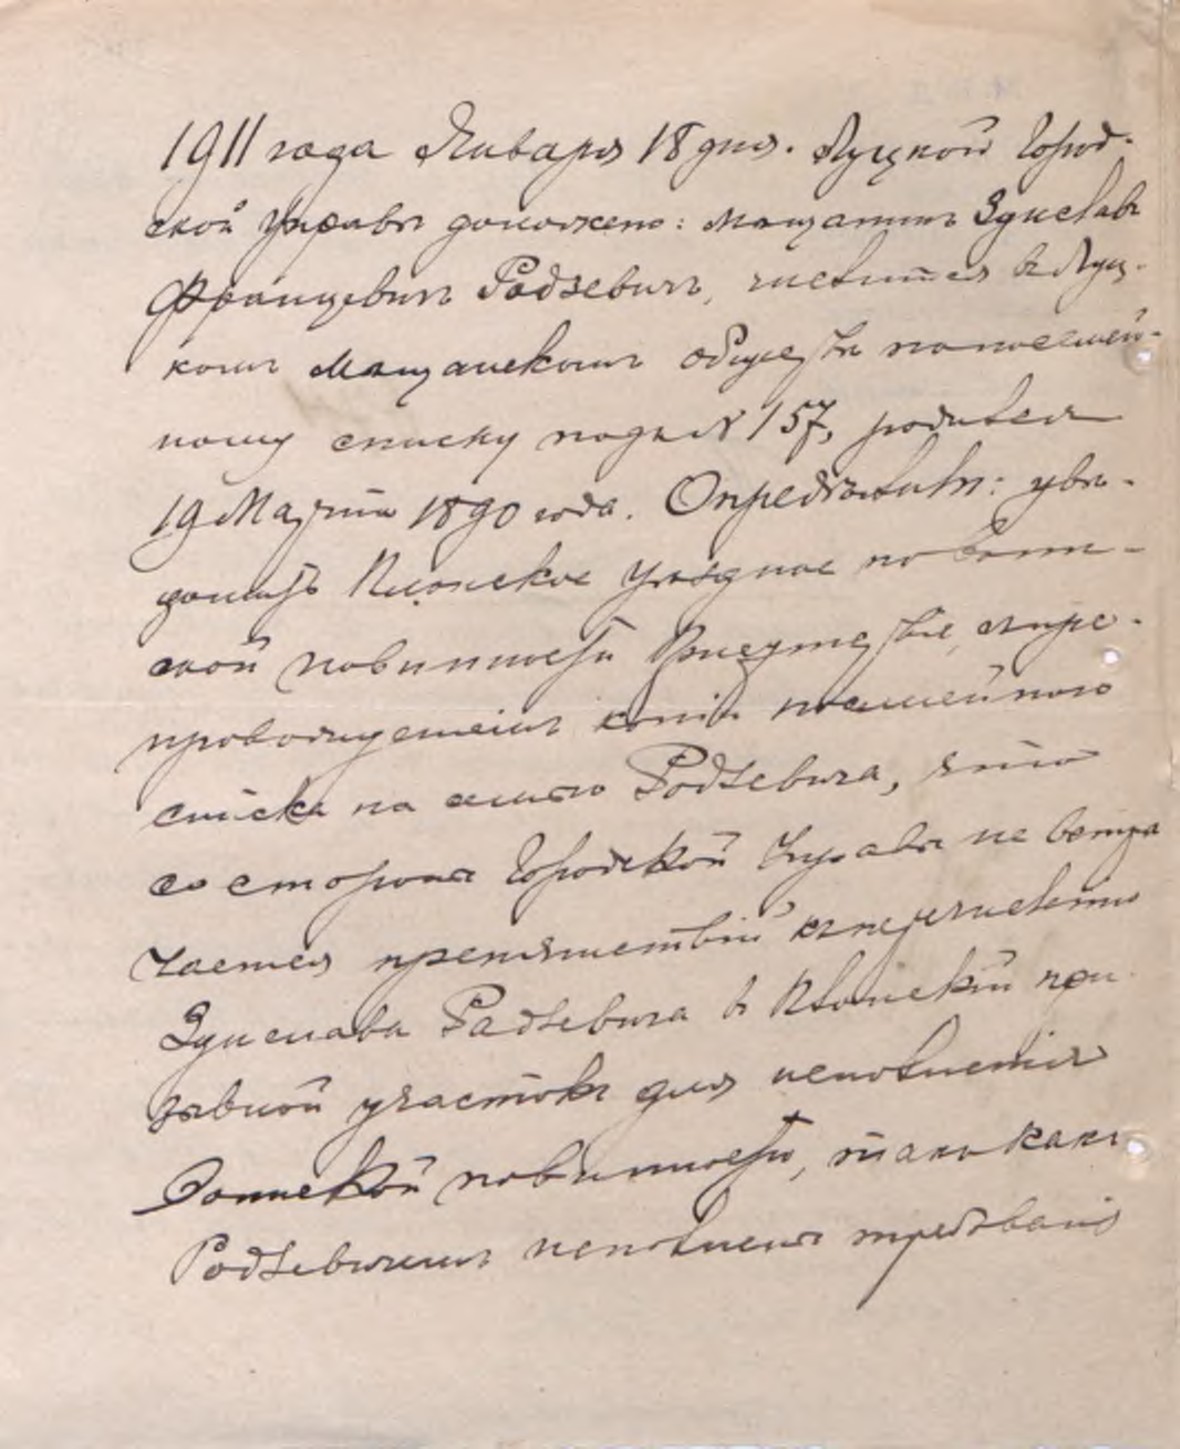 1911 года Января 18 дня. Луцкой Город-
ской Управѣ доложено: мѣщанинъ Здиславъ
Францевичъ Родзевичъ, числится въ Луц-
комъ Мѣщанскомъ обществѣ по посемей-
ному списку подъ № 157, родился
19 Марта 1890 года. Опредѣлила: увѣ-
домить Кіевское Уѣздное по воин-
ской повинности Присутствіе, літре-
провождениемъ копіи посемейного
списка на семью Родзевича, что
со стороны Городской Управы не встрѣ
чается препятствій къ перечисленію
Здислава Радзевича въ Кіевскій при
зывной участокъ для исполненія
Воинской повинности, такъ какъ
Родзевичемъ исполнены требованія